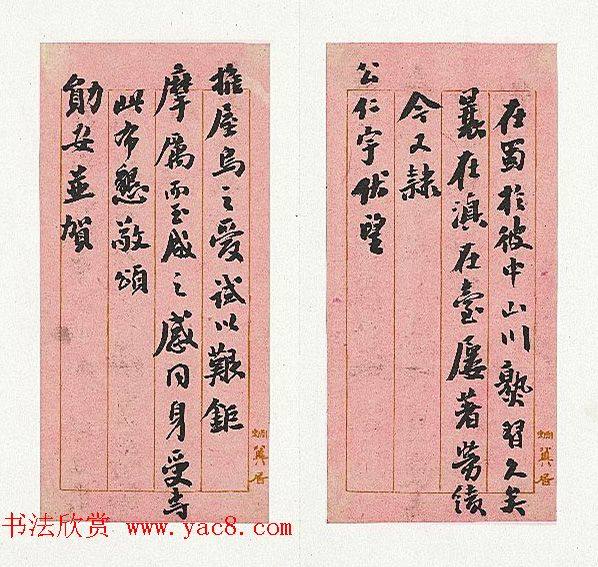 在蜀於彼中山川熟習久矣
曩在滇在臺屢著勞績
今又隸
公仁宇伏望
推屋烏之愛試以艱鉅
摩厲而玉成之感同身受專
此布懇敬頌
勛安並賀
箕居
箕居
书法欣赏 www.yac8.com